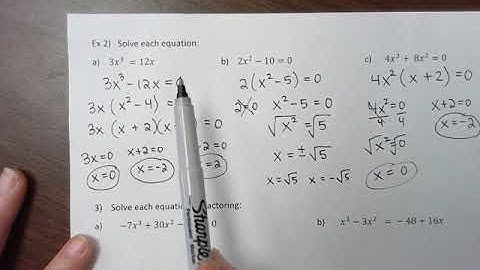 Ex 2) Solve each equation:
a) 3x³ = 12x
3x³ - 12x =
3x (x² - 4) =
3x (x + 2)(x = 0
3x = 0 x+2=0 = 0
x=0 x=-2 = 2
b) 2x² – 10 = 0
2(x² - 5) = 0
2=0 x² - 5 = 0
√x² = √5
x = ± √5
x = √5 x = -√5
c) 4x³ + 8x² = 0
4x² (x + 2) = 0
4x² = 0 x+2=0
4 4 x=-2
√x² = √0
x = 0
3) Solve each equation actoring:
a) -7x³ + 30x² - 0
b) x³ – 3x² = – 48 + 16x
Sharpie